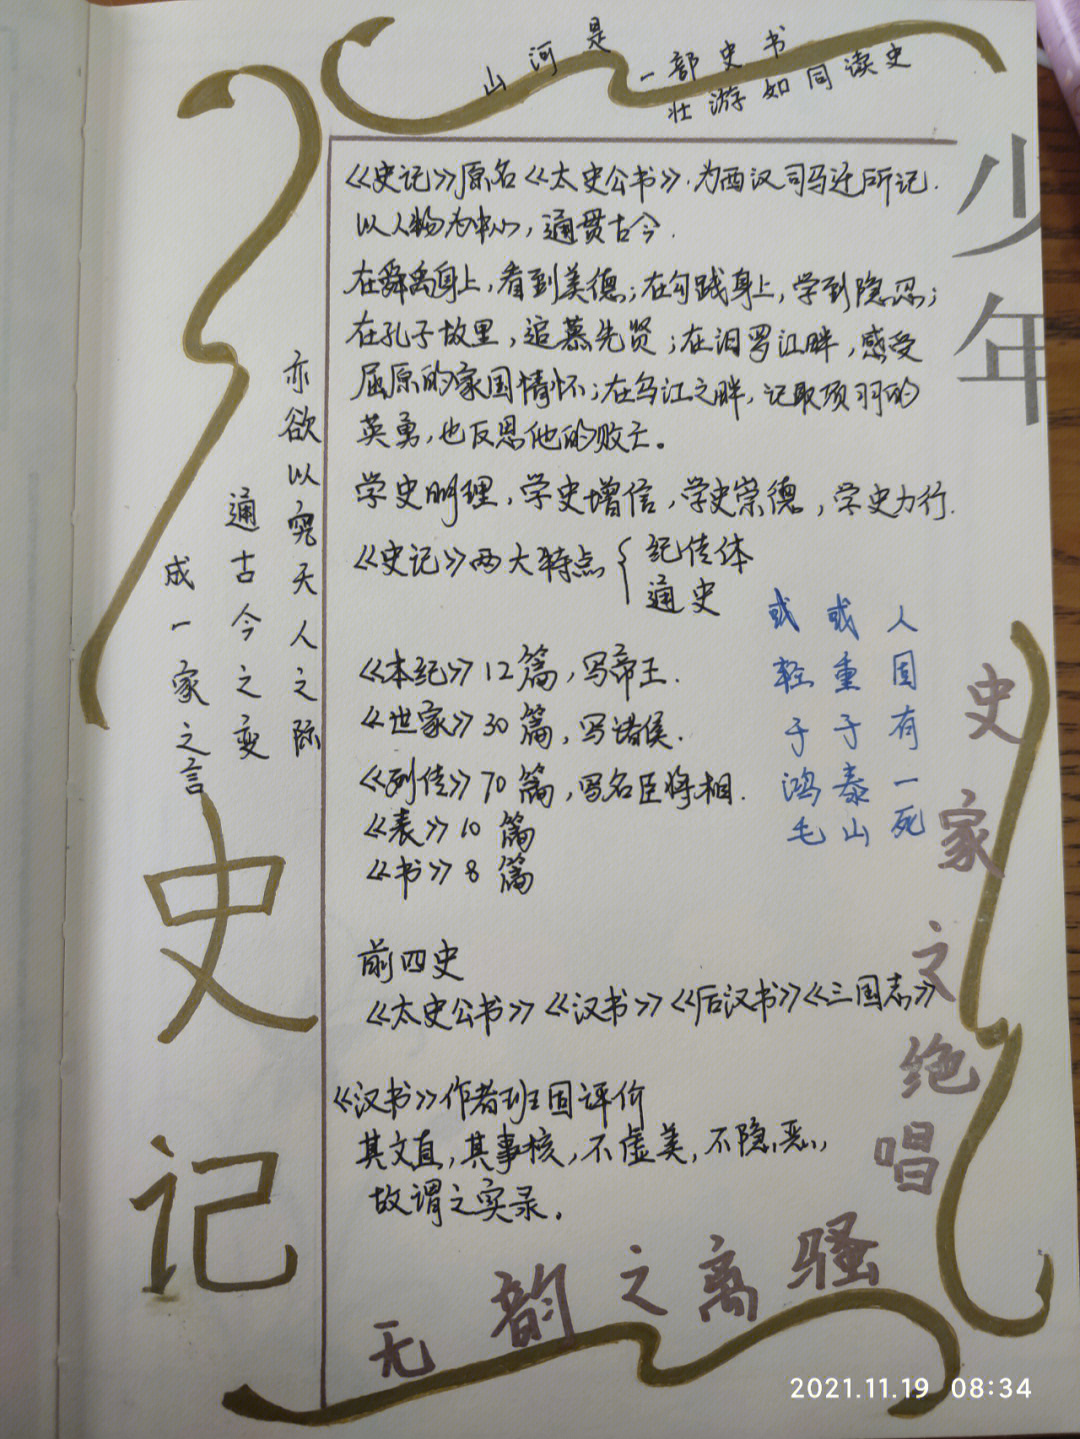 山河是一部史书
壮游如同读史
少年
《史记》原名《太史公书》.为西汉司马迁所记.
以人物为中心,通贯古今.
在舜禹身上,看到美德;在勾践身上,学到隐忍;
在孔子故里,追慕先贤;在汨罗江畔,感受
屈原的家国情怀;在乌江之畔,记取项羽的
英勇,也反思他的败亡。
学史明理,学史增信,学史崇德,学史力行.
《史记》两大特点{纪传体
通史
《本纪》12篇,写帝王.
《世家》30篇,写诸侯.
《列传》70篇,写名臣将相.
《表》10篇
《书》8篇
人固有一死
或重于泰山
或轻于鸿毛
前四史
《太史公书》《汉书》《后汉书》《三国志》
《汉书》作者班固评价
其文直,其事核,不虚美,不隐恶,
故谓之实录.
亦欲以究天人之际
通古今之变
成一家之言
史记
史家之绝唱
无韵之离骚
2021.11.19 08:34